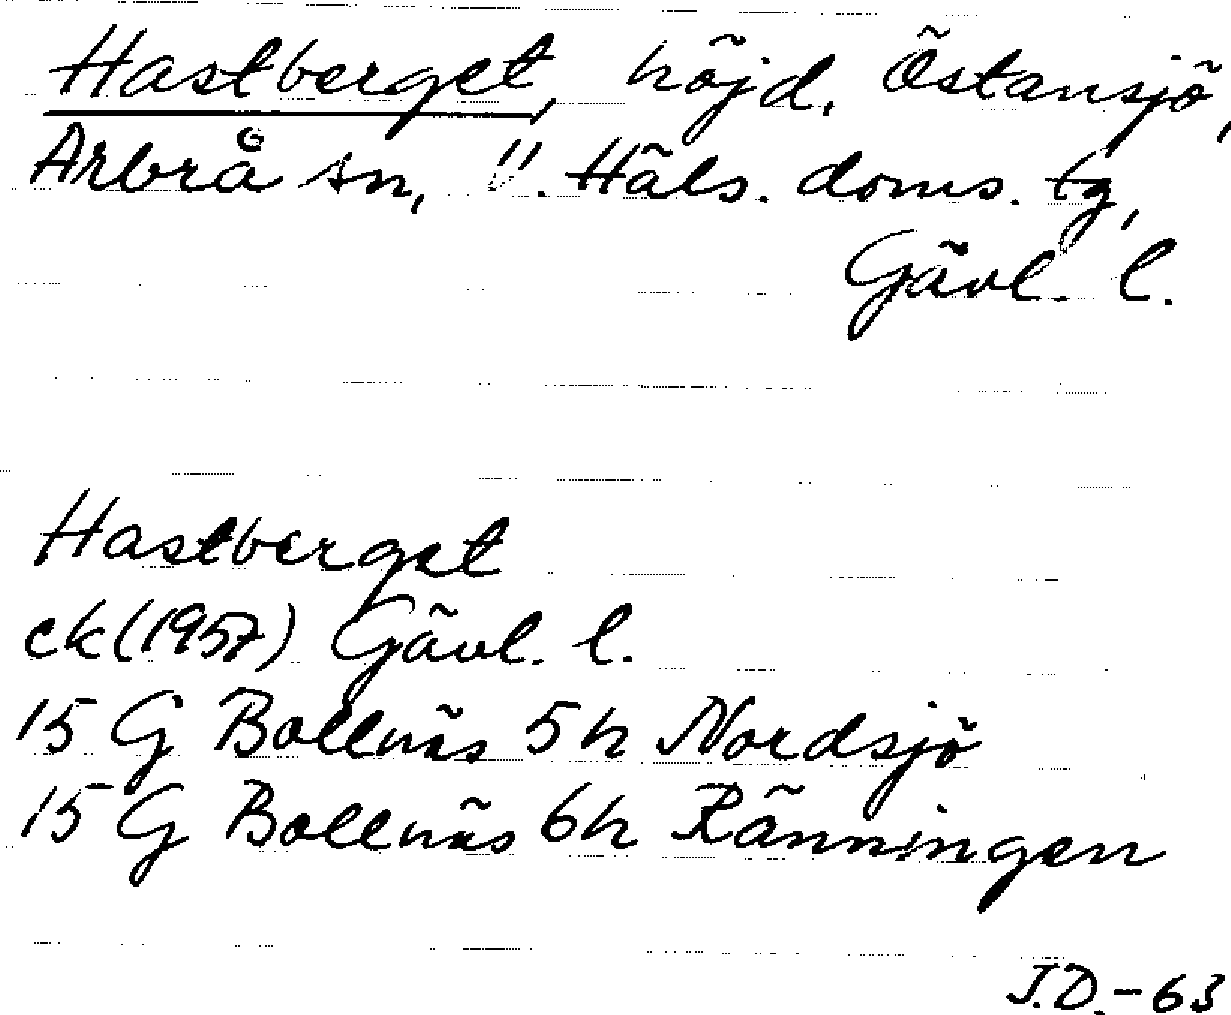 Hastberget, höjd, Östansjö,
Arbrå sn, V. Häls. doms. tg,
Gävl. l.
Hastberget
ek (1957) Gävl. l.
15 G Bollnäs 5 h Nordsjö
15 G Bollnäs 6 h Ränningen
J.D. - 63